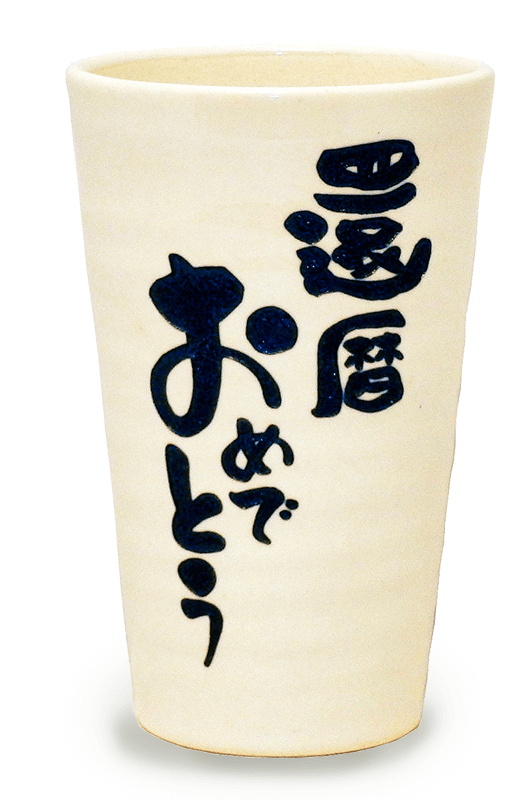 還暦
おめで
とう